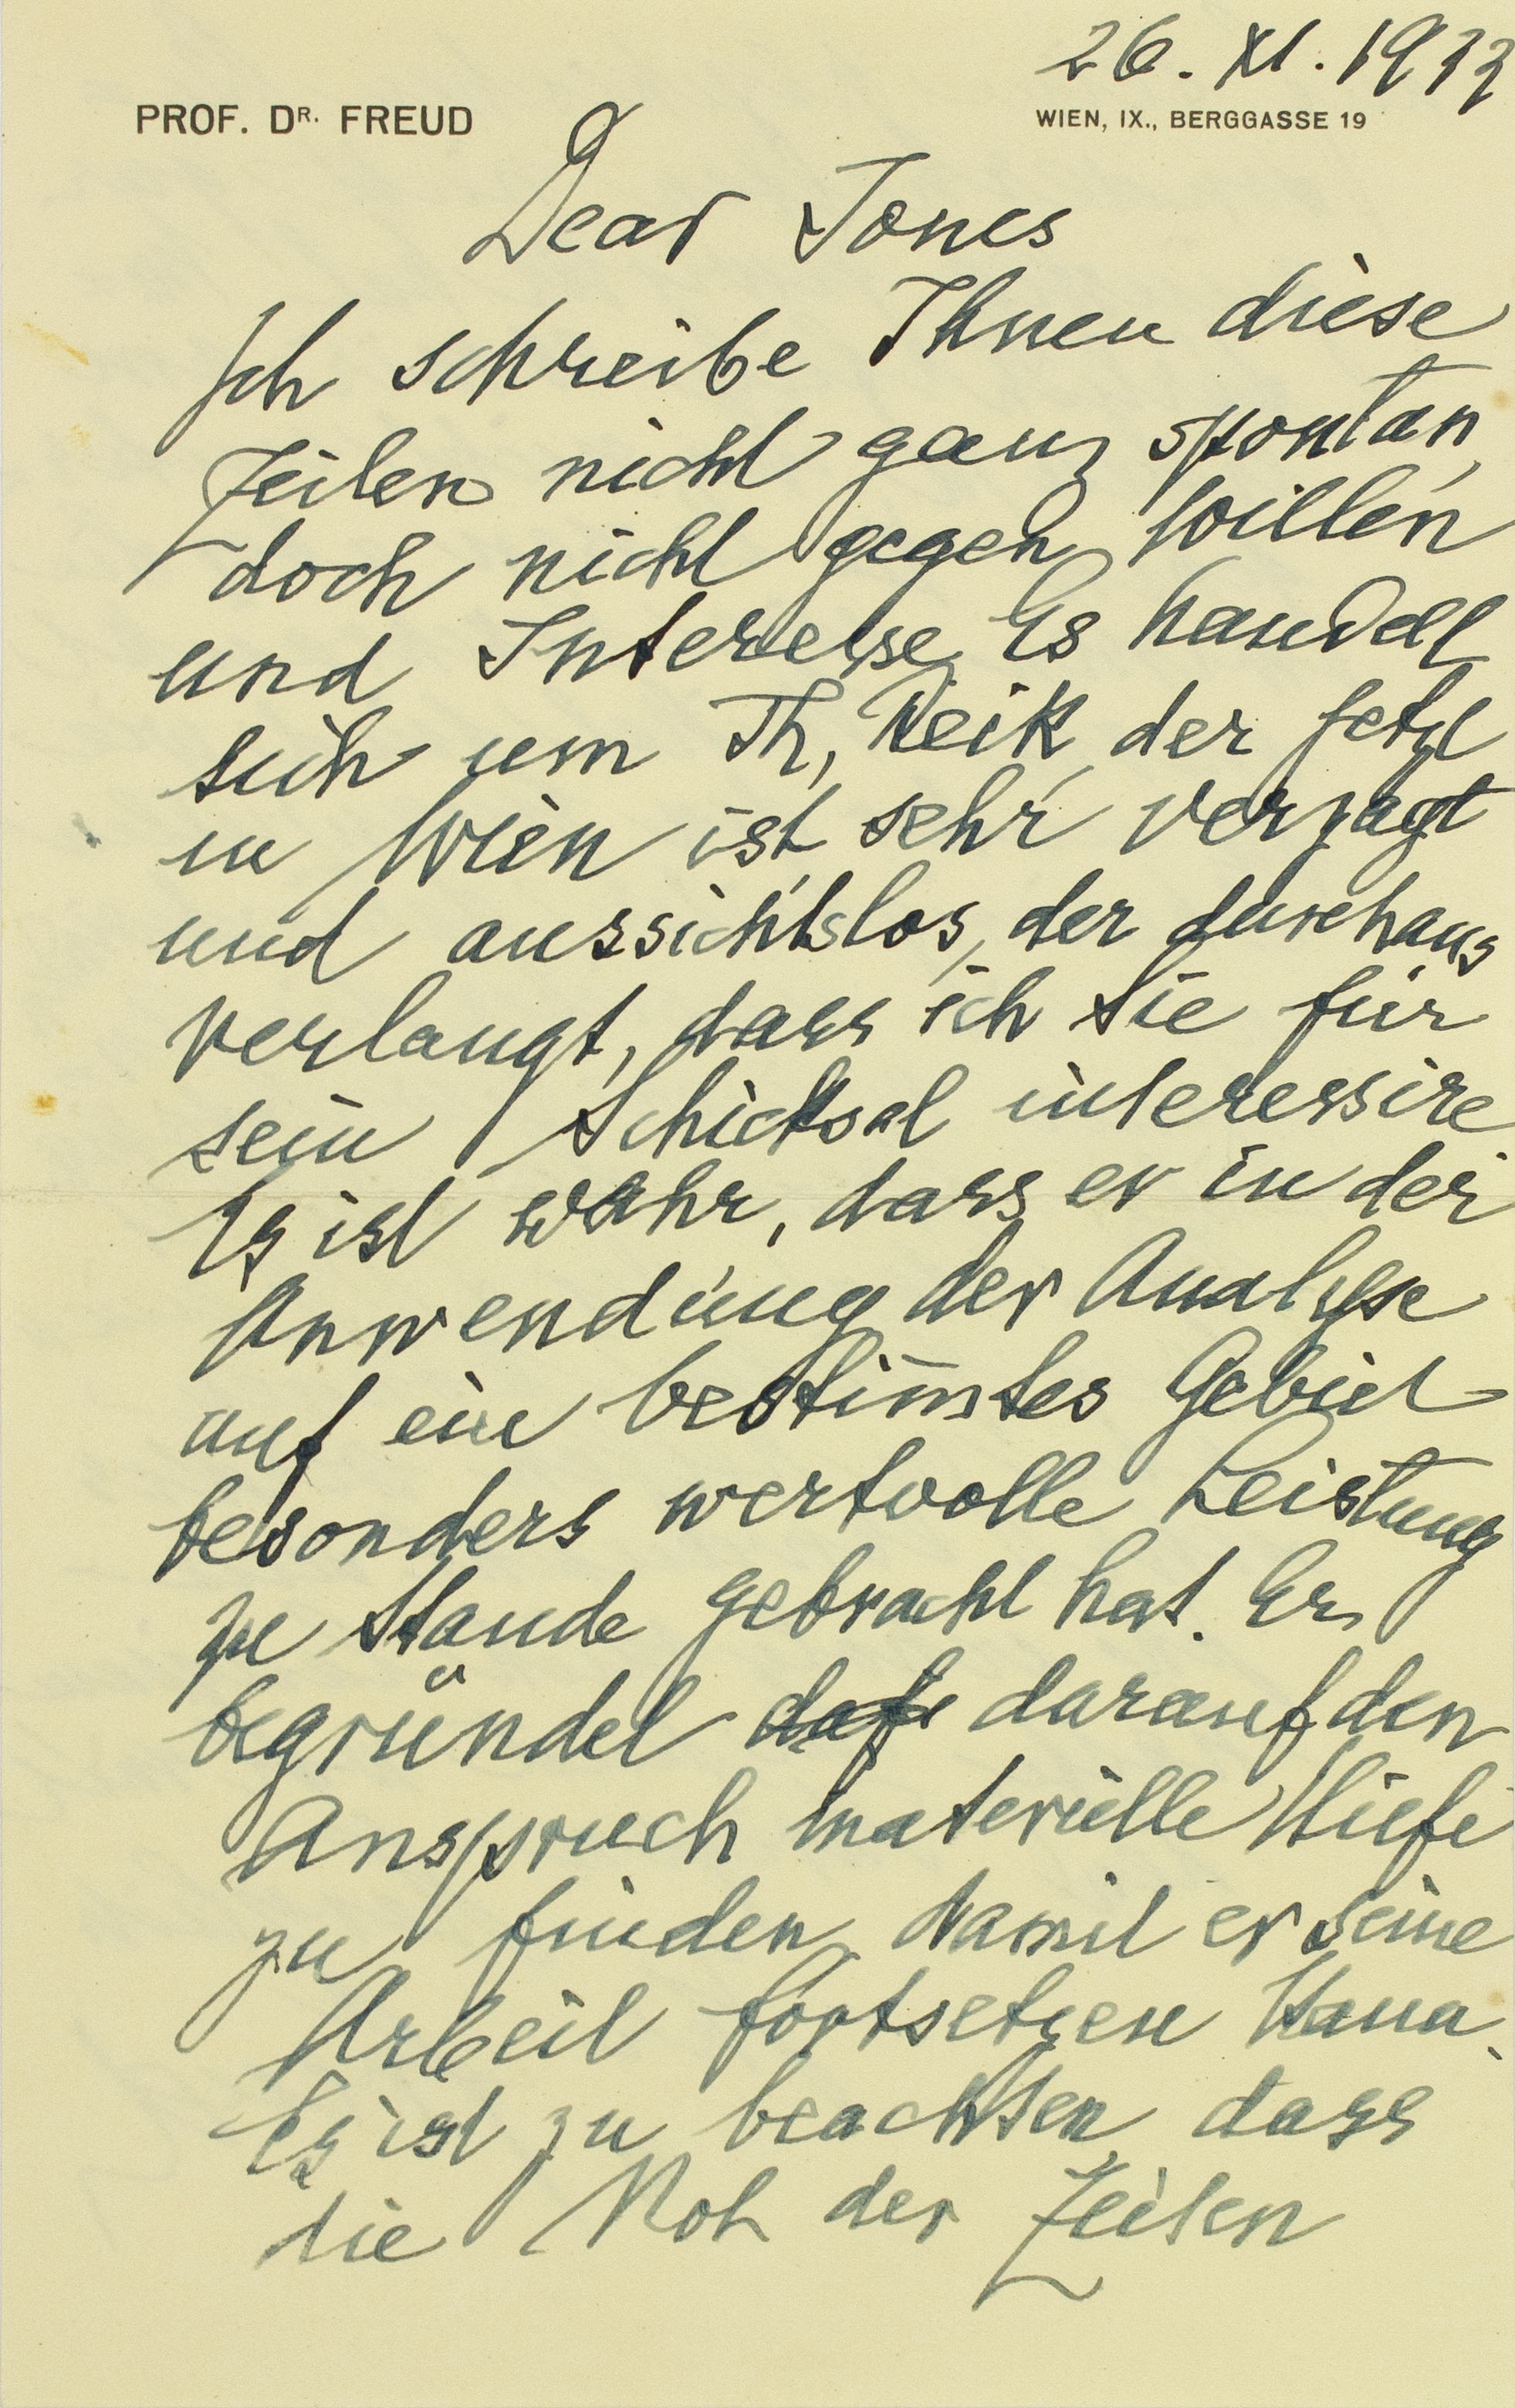 26. XI. 1933
PROF. DR. FREUD
WIEN, IX., BERGGASSE 19
Dear Jones
Ich schreibe Ihnen diese
Zeilen nicht ganz spontan,
doch nicht gegen Willen
und Interesse. Es handelt
sich um Th. Reik, der jetzt
in Wien ist, sehr verzagt
und aussichtslos, der durchaus
verlangt, dass ich Sie für
sein Schicksal interessire.
Es ist wahr, dass er in der
Anwendung der Analyse
auf ein bestim̄tes Gebiet
besonders wertvolle Leistung
zu Stande gebracht hat. Er
begründet darauf den
Anspruch materielle Hilfe
zu finden, damit er seine
Arbeit fortsetzen kann.
Es ist zu beachten, dass
die Not der Zeiten